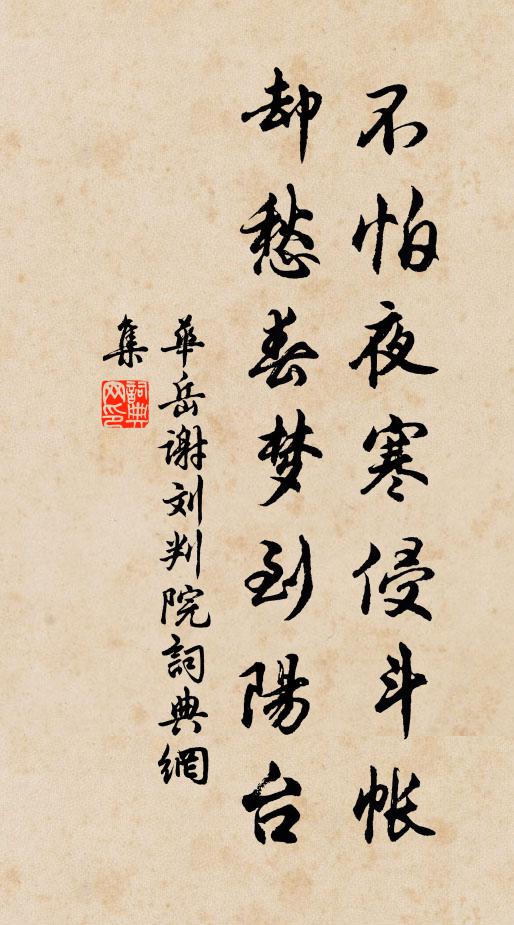 不怕夜寒侵斗帐
却愁春梦到陽台
華岳谢刘判院詞典網
集
詞典網印